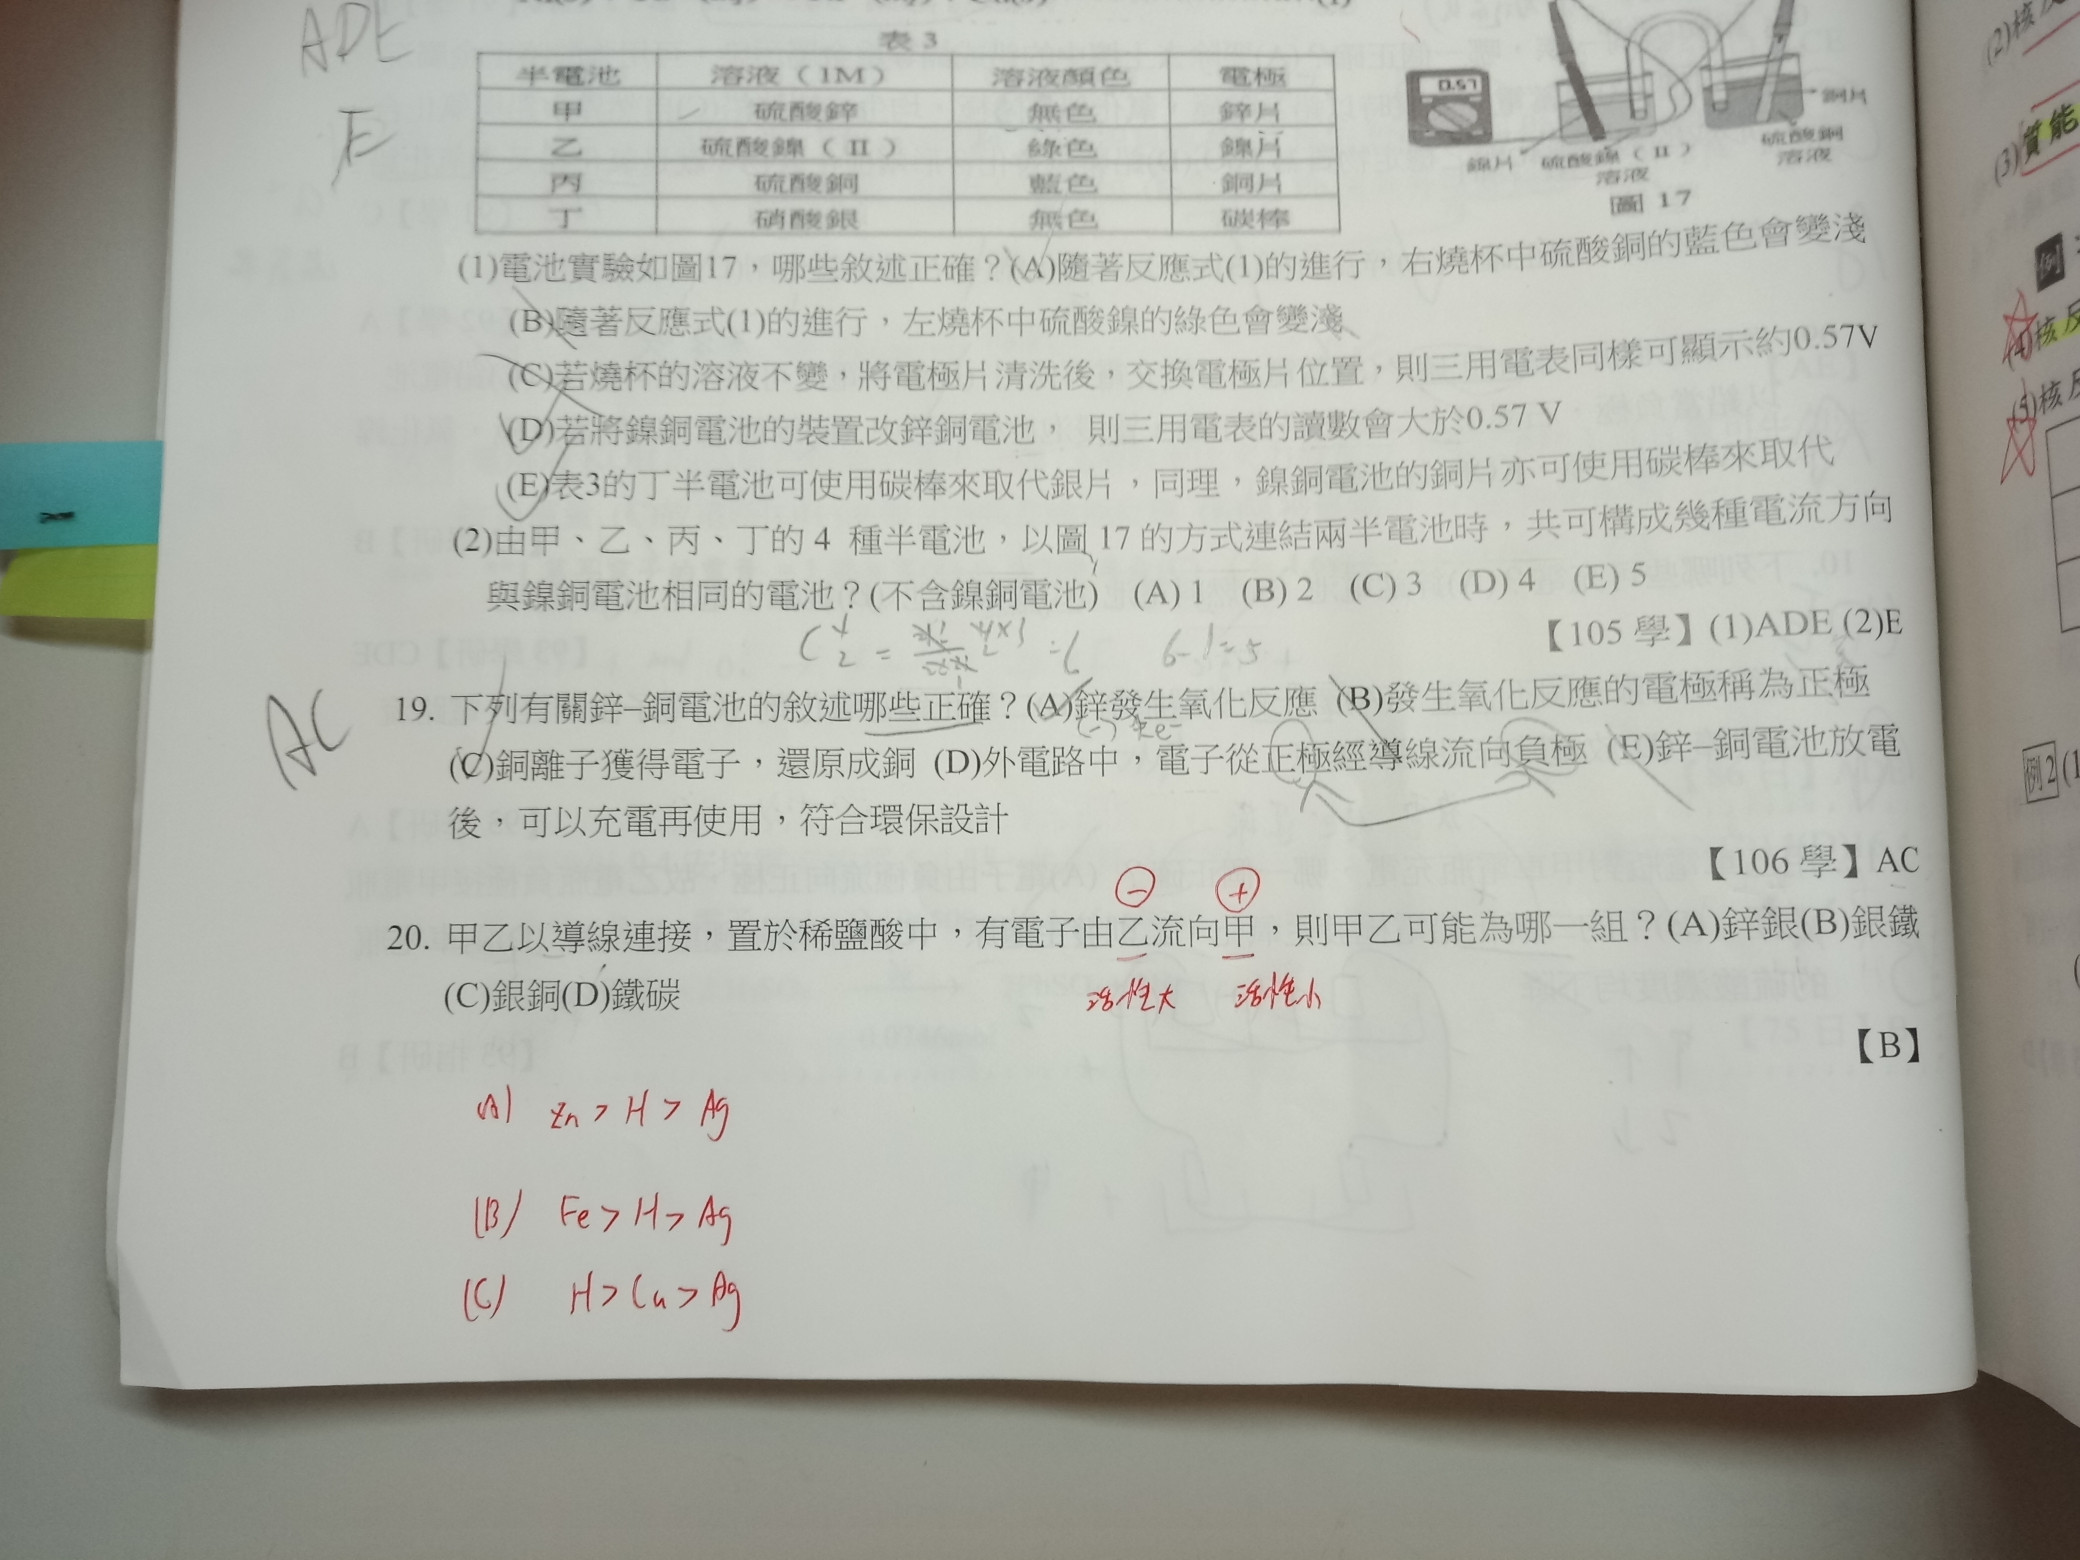 ADE
E
表3
半電池 溶液(1M) 溶液顏色 電極
甲 硫酸鋅 無色 鋅片
乙 硫酸鎳(II) 綠色 鎳片
丙 硫酸銅 藍色 銅片
丁 硝酸銀 無色 碳棒
0.57
銅片
鎳片 硫酸鎳(II)溶液 硫酸銅溶液
圖17
(1)電池實驗如圖17,哪些敘述正確?(A)隨著反應式(1)的進行,右燒杯中硫酸銅的藍色會變淺
(B)隨著反應式(1)的進行,左燒杯中硫酸鎳的綠色會變淺
(C)若燒杯的溶液不變,將電極片清洗後,交換電極片位置,則三用電表同樣可顯示約0.57V
(D)若將鎳銅電池的裝置改鋅銅電池, 則三用電表的讀數會大於0.57 V
(E)表3的丁半電池可使用碳棒來取代銀片,同理,鎳銅電池的銅片亦可使用碳棒來取代
(2)由甲、乙、丙、丁的 4 種半電池,以圖 17 的方式連結兩半電池時,共可構成幾種電流方向
與鎳銅電池相同的電池?(不含鎳銅電池) (A) 1 (B) 2 (C) 3 (D) 4 (E) 5
6-1=5
【105 學】(1)ADE (2)E
AC
19. 下列有關鋅–銅電池的敘述哪些正確?(A)鋅發生氧化反應 (B)發生氧化反應的電極稱為正極
(-) 失e-
(C)銅離子獲得電子,還原成銅 (D)外電路中,電子從正極經導線流向負極 (E)鋅–銅電池放電
後,可以充電再使用,符合環保設計
【106 學】AC
- +
20. 甲乙以導線連接,置於稀鹽酸中,有電子由乙流向甲,則甲乙可能為哪一組?(A)鋅銀(B)銀鐵
(C)銀銅(D)鐵碳
活性大 活性小
【B】
(A) Zn > H > Ag
(B) Fe > H > Ag
(C) H > Cu > Ag
(2)核
(3)質能
例
(4)核反
(5)核反
例2 (1